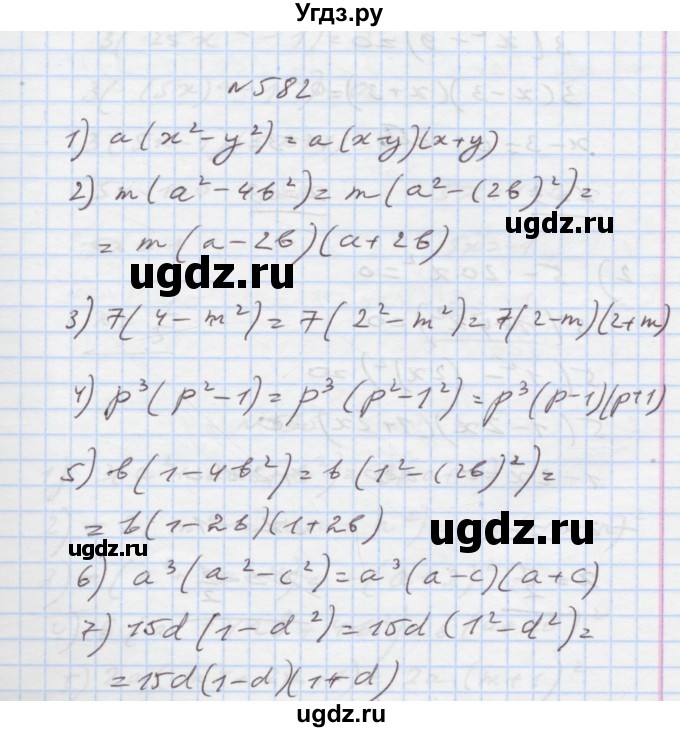 Угдз.ру
№582
1) a(x²-y²)=a(x-y)(x+y)
2) m(a²-4b²)=m(a²-(2b)²)=
=m(a-2b)(a+2b)
ugdz.ru
ugdz.ru
3) 7(4-m²)=7(2²-m²)=7(2-m)(2+m)
4) p³(p²-1)=p³(p²-1²)=p³(p-1)(p+1)
5) b(1-4b²)=b(1²-(2b)²)=
=b(1-2b)(1+2b)
ugdz.ru
ugdz.ru
6) a³(a²-c²)=a³(a-c)(a+c)
7) 15d(1-d²)=15d(1²-d²)=
=15d(1-d)(1+d)
ugdz.ru